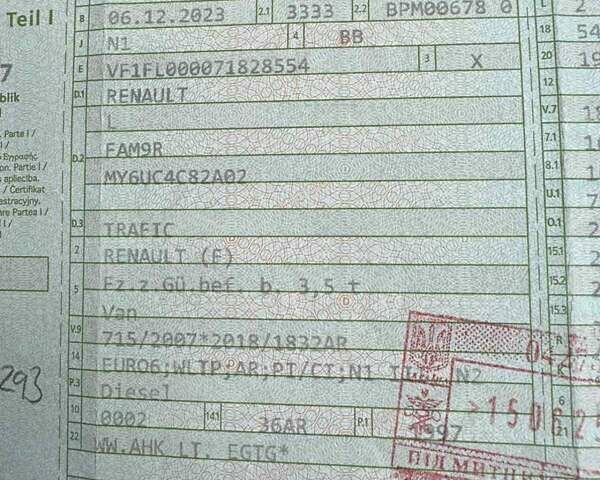 Teil I
B 06.12.2023 2.1 3333 2.2 BPM00678 0 L 2
J N1 4 BB 18 54
E VF1FL000071828554 3 X 20 19
7
D.1 RENAULT
blik
L V.7
Parte I / 7.1
D.2 FAM9R
on. Parte I / 8.1
MY6UC4C82A02
apliecība.
/ Certifikat U.1 7
estracyjny.
are Partea I / O.1
D.3 TRAFIC
I /
2 RENAULT (F) 15.1 2
5 Fz.z.Gü.bef. b. 3,5 t 15.2 2
Van 15.3
V.9 715/2007*2018/1832AR R
14 EURO6;WLTP;AR;PI/CI;N1 N2 K
P.3 Diesel 6
293
10 0002 14.1 36AR P.1 1997 21
22 WW.AHK LT. EGTG*
ПІД МИТНИ